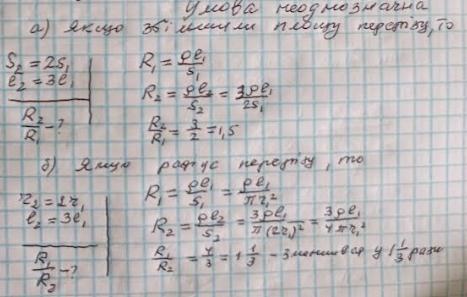 Умова неоднозначна
а) Якщо збільшили площу перерізу, то
S₂ = 2S₁
l₂ = 3l₁
R₂/R₁ - ?
R₁ = ρl₁/S₁
R₂ = ρl₂/S₂ = 3ρl₁/2S₁
R₂/R₁ = 3/2 = 1,5
б) Якщо радіус перерізу, то
r₂ = 2r₁
l₂ = 3l₁
R₁/R₂ - ?
R₁ = ρl₁/S₁ = ρl₁/πr₁²
R₂ = ρl₂/S₂ = 3ρl₁/π(2r₁)² = 3ρl₁/4πr₁²
R₁/R₂ = 4/3 = 1 1/3 - зменшився у 1 1/3 рази